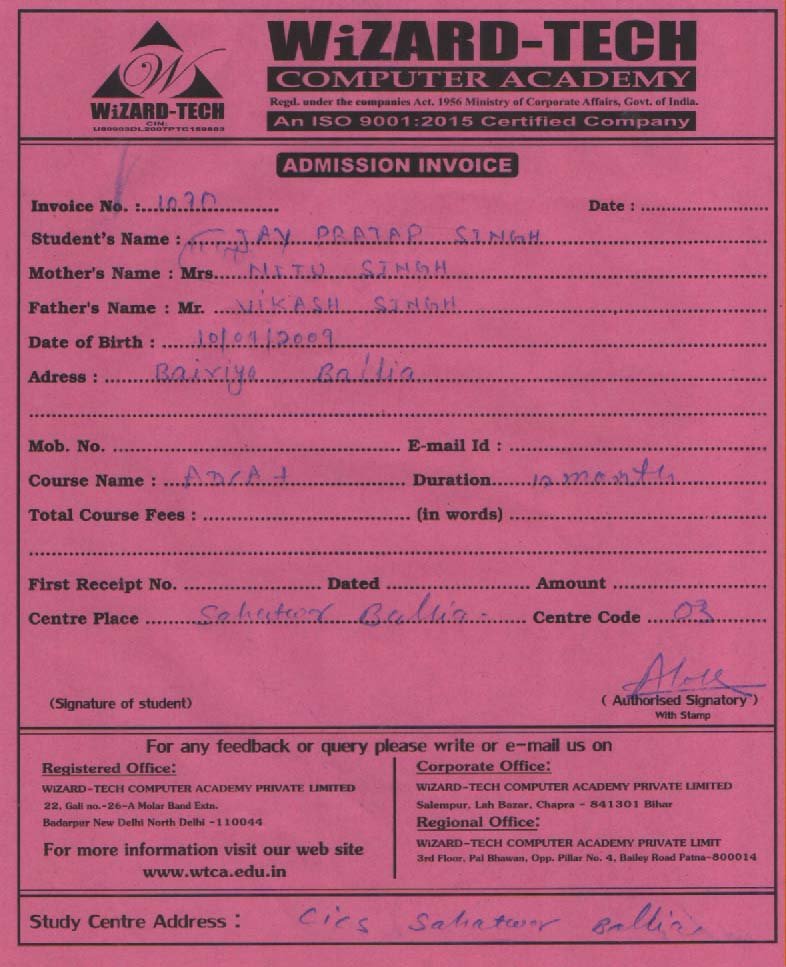 WiZARD-TECH
COMPUTER ACADEMY
Regd. under the companies Act. 1956 Ministry of Corporate Affairs, Govt. of India.
An ISO 9001:2015 Certified Company
W
WiZARD-TECH
CIN:
ADMISSION INVOICE
Invoice No. : Date :
Student's Name : JAY PRATAP SINGH
Mother's Name : Mrs. NITU SINGH
Father's Name : Mr. VIKASH SINGH
Date of Birth : 2009
Adress : Bairiya Ballia
Mob. No. E-mail Id :
Course Name : Duration 12 month
Total Course Fees : (in words)
First Receipt No. Dated Amount
Centre Place Sahatwar Ballia - Centre Code 03
(Signature of student) ( Authorised Signatory )
With Stamp
For any feedback or query please write or e-mail us on
Registered Office:
WiZARD-TECH COMPUTER ACADEMY PRIVATE LIMITED
22, Gali no.-26-A Molar Band Extn.
Badarpur New Delhi North Delhi -110044
For more information visit our web site
www.wtca.edu.in
Corporate Office:
WiZARD-TECH COMPUTER ACADEMY PRIVATE LIMITED
Salempur, Lah Bazar, Chapra - 841301 Bihar
Regional Office:
WiZARD-TECH COMPUTER ACADEMY PRIVATE LIMIT
3rd Floor, Pal Bhawan, Opp. Pillar No. 4, Bailey Road Patna-800014
Study Centre Address : CICS Sahatwar Ballia